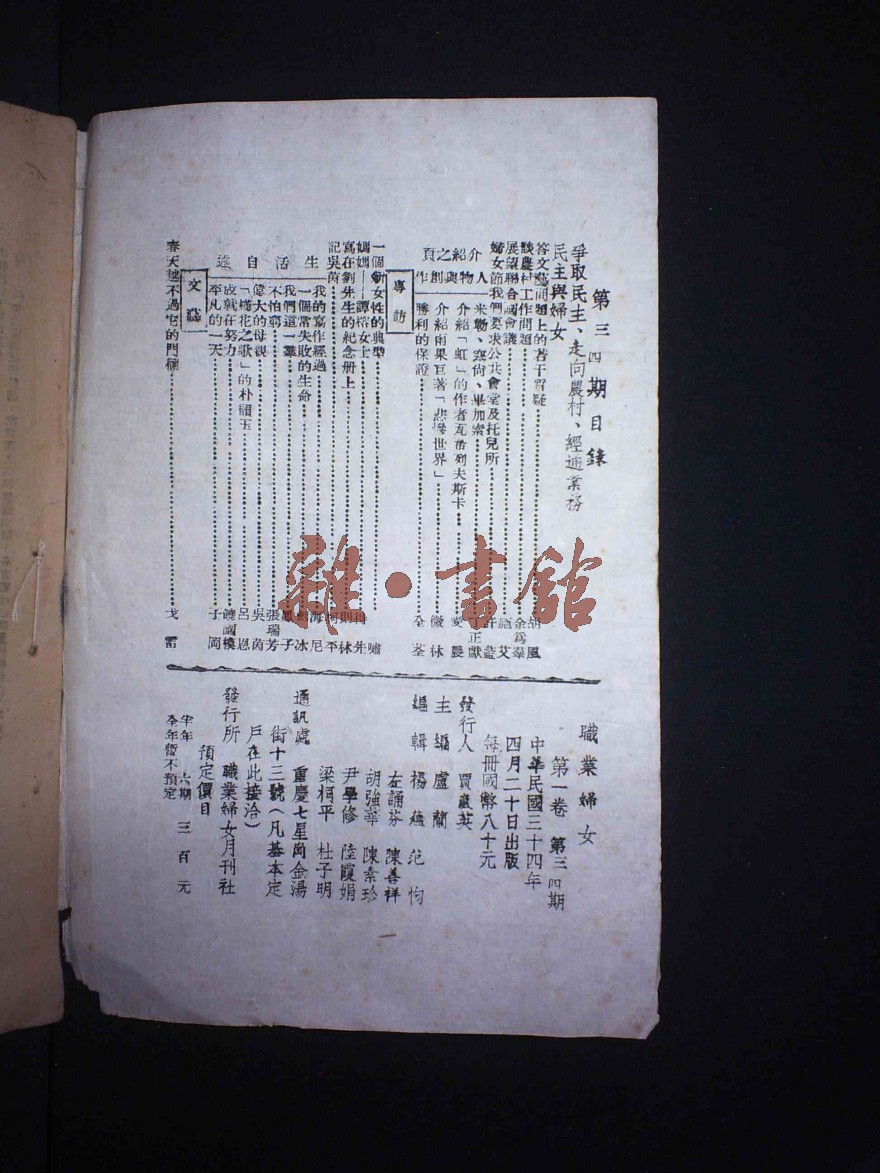 第三四期目錄
爭取民主、走向農村、經適業務
民主與婦女
答文藝問題上的若干質疑 胡風
談農村工作問題 余爲羣
展望聯合國會議 施艾
婦女節我們要求公共會堂及托兒所 許藍
人物紹介與創作之頁
米勒、窓尙、畢加索 正獻
介紹「虹」的作者瓦希列夫斯卡 麥農
介紹雨果巨著「悲慘世界」 微林
勝利的保證 全荃
專訪
一個新女性的典型 嘯
媽媽——譚榕女士
寫在劉先生的紀念册上 則林
記吳茵 柯平
生活自述
我的寫作經過 海尼
一個常失敗的生命 冰
我們這一羣 子
不怕窮 張瑞芳
偉大的母親 吳茵
「棉花之歌」的朴福玉 呂恩
成就在努力 饒國模
平凡的一天 子岡
文藝
春天越不過它的門檻 戈雷
職業婦女
第一卷 第三四期
中華民國三十四年
四月二十日出版
每冊國幣八十元
發行人 賈嬴英
主編 盧蘭
編輯 楊蘊 范怐
左誦芬 陳善祥
胡強華 陳素珍
尹學修 陸霞娟
梁柯平 杜子明
通訊處 重慶七星崗金湯
街十三號（凡基本定
戶在此接洽）
發行所 職業婦女月刊社
預定價目
半年 六期 三百元
全年暫不預定
雜·書館